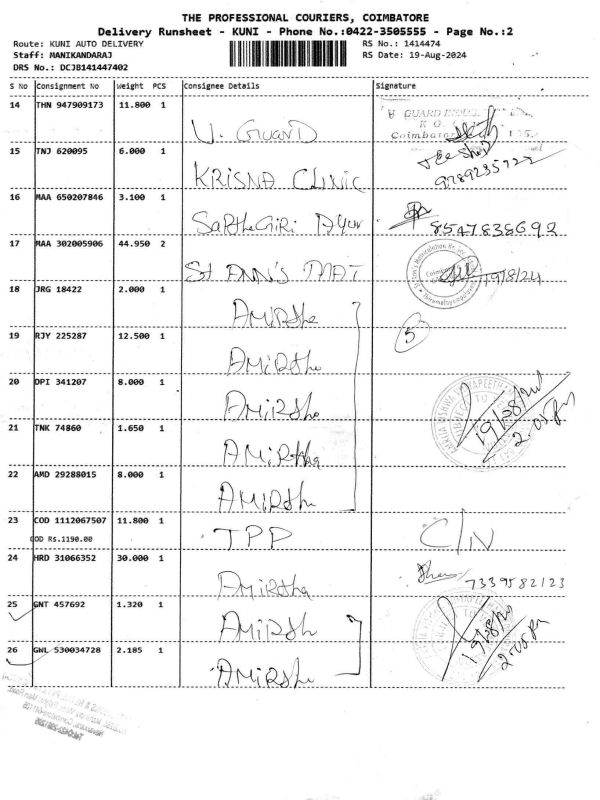 THE PROFESSIONAL COURIERS, COIMBATORE
Delivery Runsheet - KUNI - Phone No.:0422-3505555 - Page No.:2
Route: KUNI AUTO DELIVERY RS No.: 1414474
Staff: MANIKANDARAJ RS Date: 19-Aug-2024
DRS No.: DCJB141447402
S No Consignment No Weight PCS Consignee Details Signature
14 THN 947909173 11.800 1 V. GUARD
V GUARD
K G
Coimbator
15 TNJ 620095 6.000 1 KRISNA CLINIC 9789235722
16 MAA 650207846 3.100 1 SaRtheGiRi Ayur 8547838692
17 MAA 302005906 44.950 2 St ANN'S MAT 19/8/24
18 JRG 18422 2.000 1 AMIRthe
5
19 RJY 225287 12.500 1 AMIRthe
20 DPI 341207 8.000 1 AMIRthe
19/08/24
2.05 Pm
21 TNK 74860 1.650 1 AMIRtha
22 AMD 29288015 8.000 1 AMIRthe
23 COD 1112067507 11.800 1 TPP C/N
COD Rs.1190.00
24 HRD 31066352 30.000 1 AMIRtha 7339582123
25 GNT 457692 1.320 1 AMIRth
19/08/24
2.05 Pm
26 GWL 530034728 2.185 1 AMIRthe